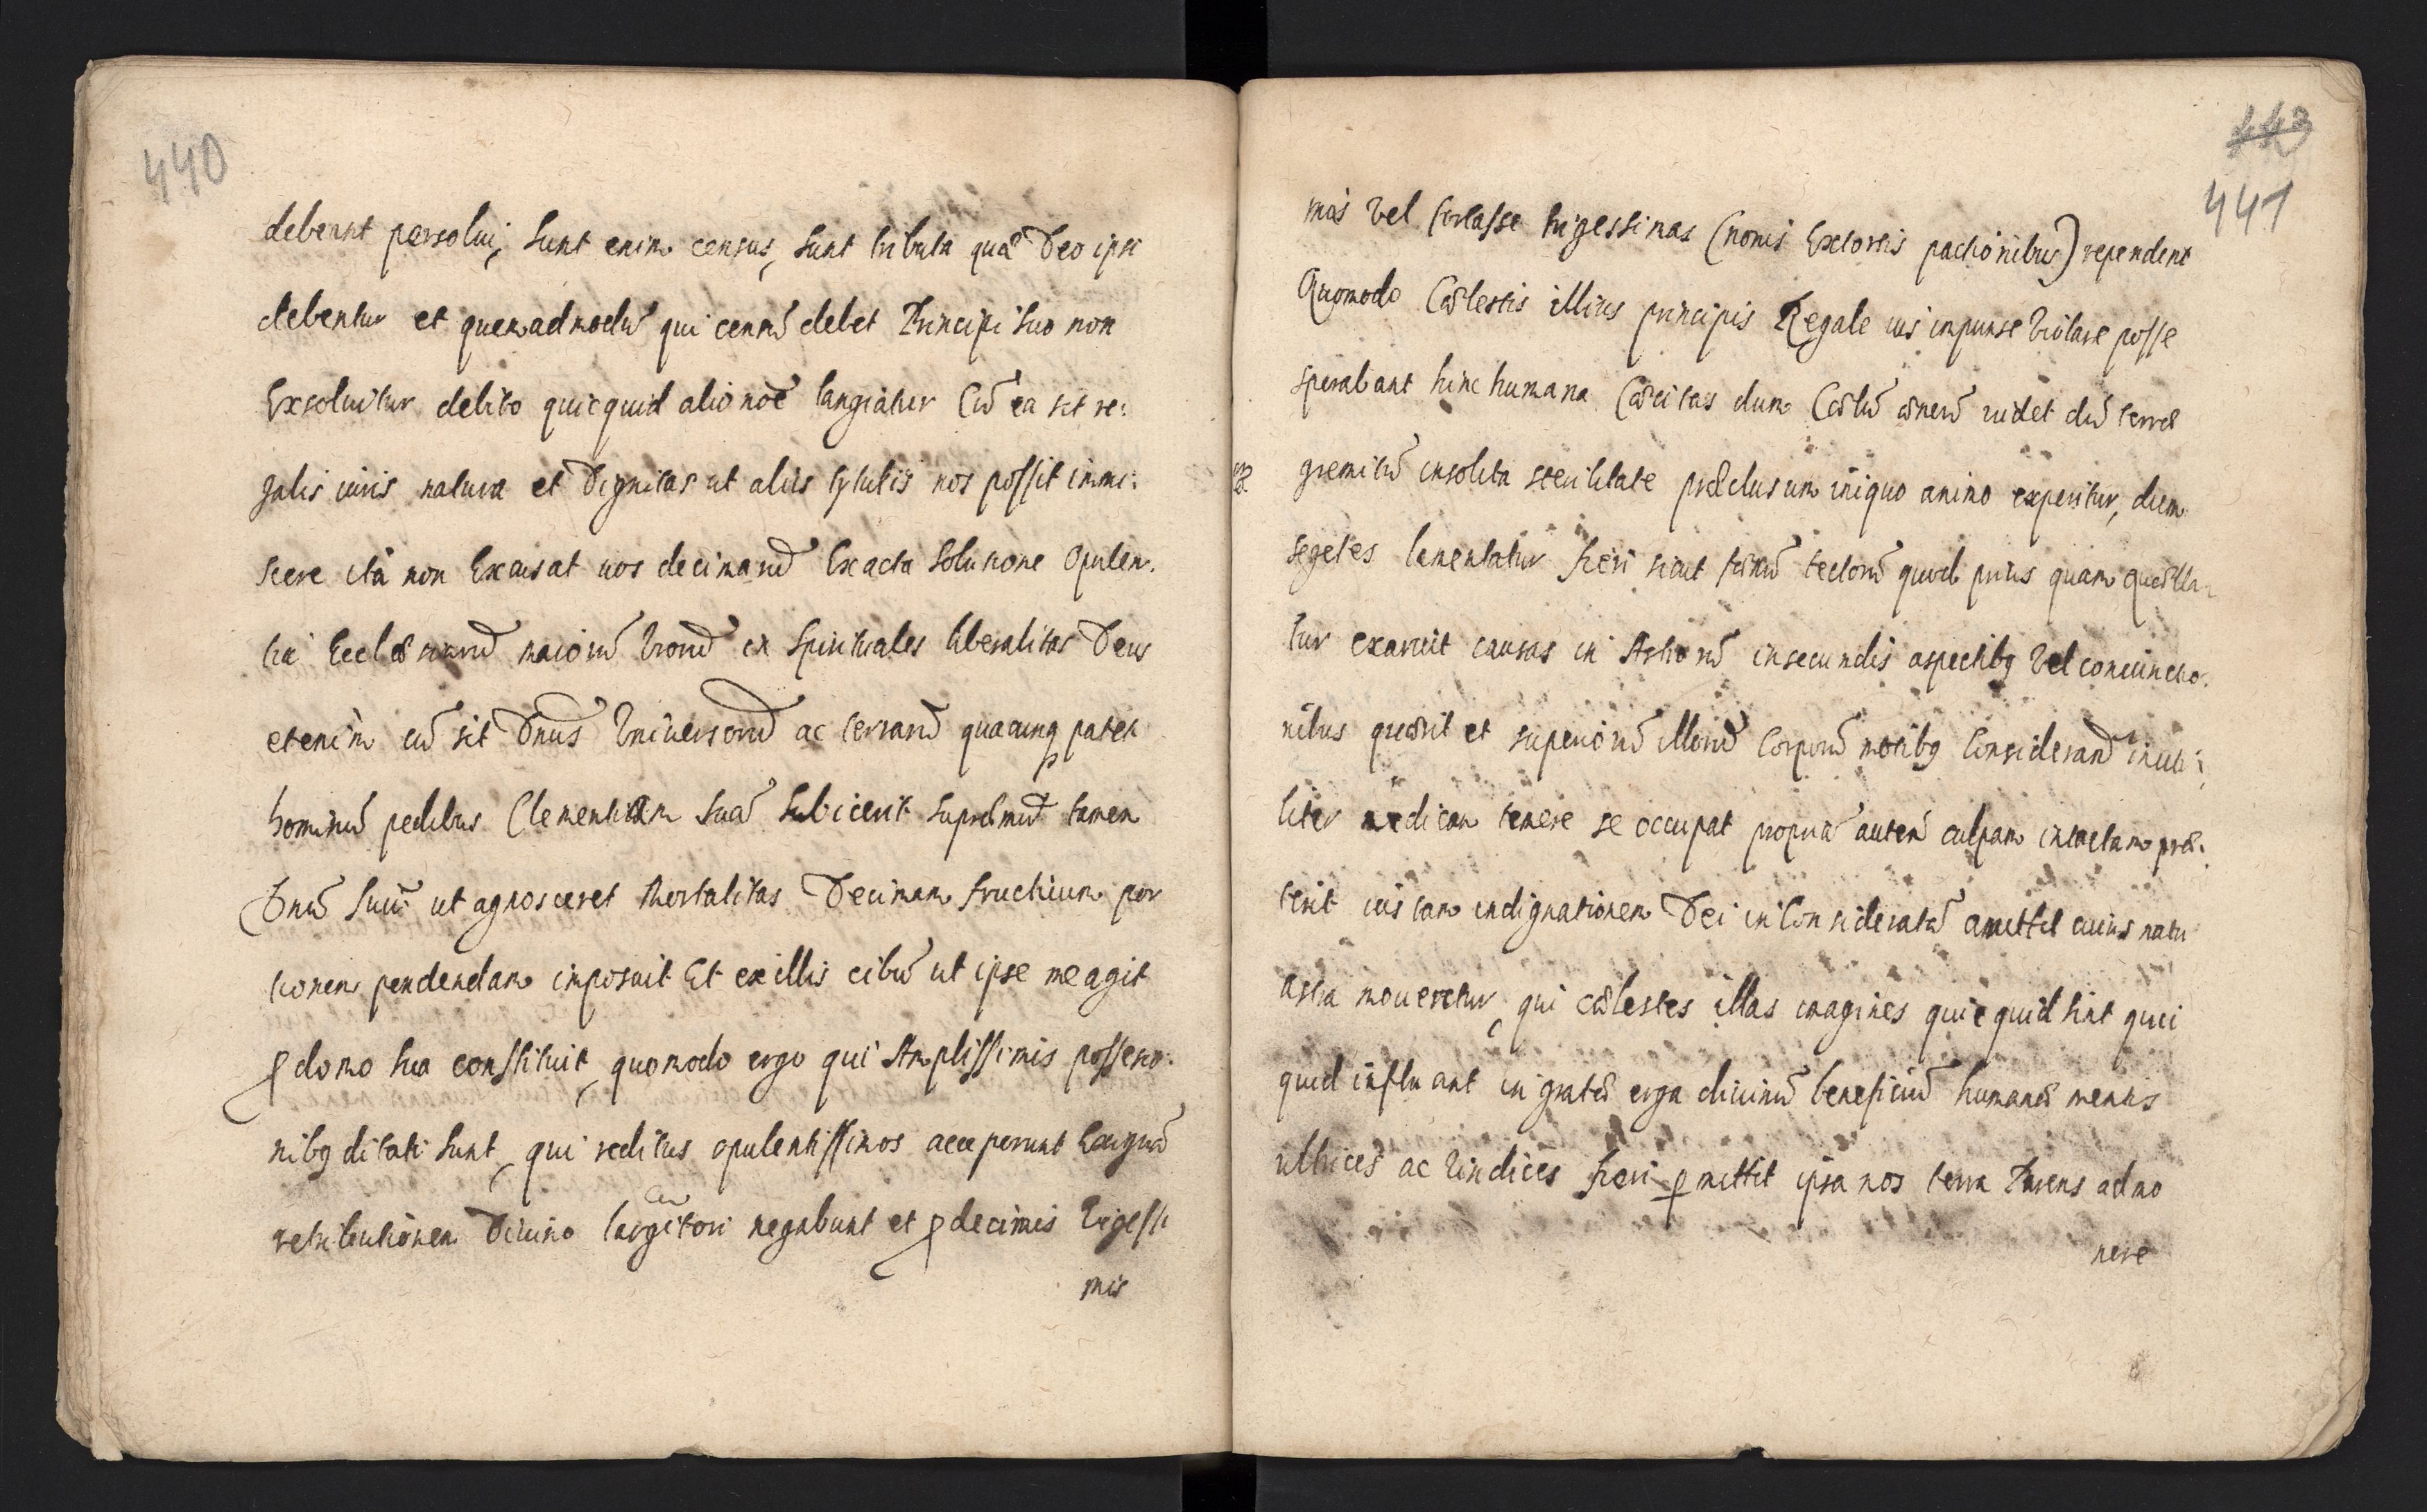 440
debeant persolui, sunt enim census, sunt tributa quæ Deo ipsi
debentur et quemadmodũ qui censũ debet Principi suo non
Exsoluitur debito quicquid alio noẽ largiatur Cũ ea sit re:
galis iuris natura et Dignitas ut alius tytulis nos possit immi:
scere ità non Excusat nos decimarũ Exacta solutione Opulen.
tia Ecclesiarũ maiorũ vrorũ in Spirituales liberalitas Deus
etenim cũ sit Dñus Vniuersorũ ac terrarũ quacunq patet
hominũ pedibus Clementiam suã subicerit supremũ tamen
Dnũ suũ ut agnosceret Mortalitas Decimam fructuum por
tionem pendendam imposuit Et ex illis cibũ ut ipse me agit
ꝓ domo sua constituit, quomodo ergo qui Amplissimis possessio.
nibꝯ ditati sunt, qui reditus opulentissimos acceperunt Exiguã
retributionem Diuino largitori negabunt et ꝓ decimis Vigessi
mis
443
441
mas vel fortasse trigessimas (nouis Extortis pactionibus) rependent
Quomodo Cœlestis illius principis Regale ius impunse violare posse
sperabant hinc humana Cœcitas dum Cœlũ œneũ uidet dũ terræ
gremiũ insolita sterilitate præclusum iniquo animo experitur, dum
segetes lamentatur fieri sicut fœnũ tectorũ quod prius quam euella
tur exaruit causas in Astrorũ infecundis aspectibꝯ Vel coniunctio.
nibus quærit et superiorũ illorũ Corporũ motibꝯ Considerand inuti:
liter medicam temere se occupat propriã autem culpam intactam præ.
terit iustam indignationem Dei inconsideratã amittit cuius natu
astra mouentur, qui cœlestes illas imagines quicquid sint quic
quid influant ingratæ erga diuinũ beneficiũ humanæ mentis
ultrices ac Vindices fieri ꝑmittit ipsa nos terra Parens admo
nere